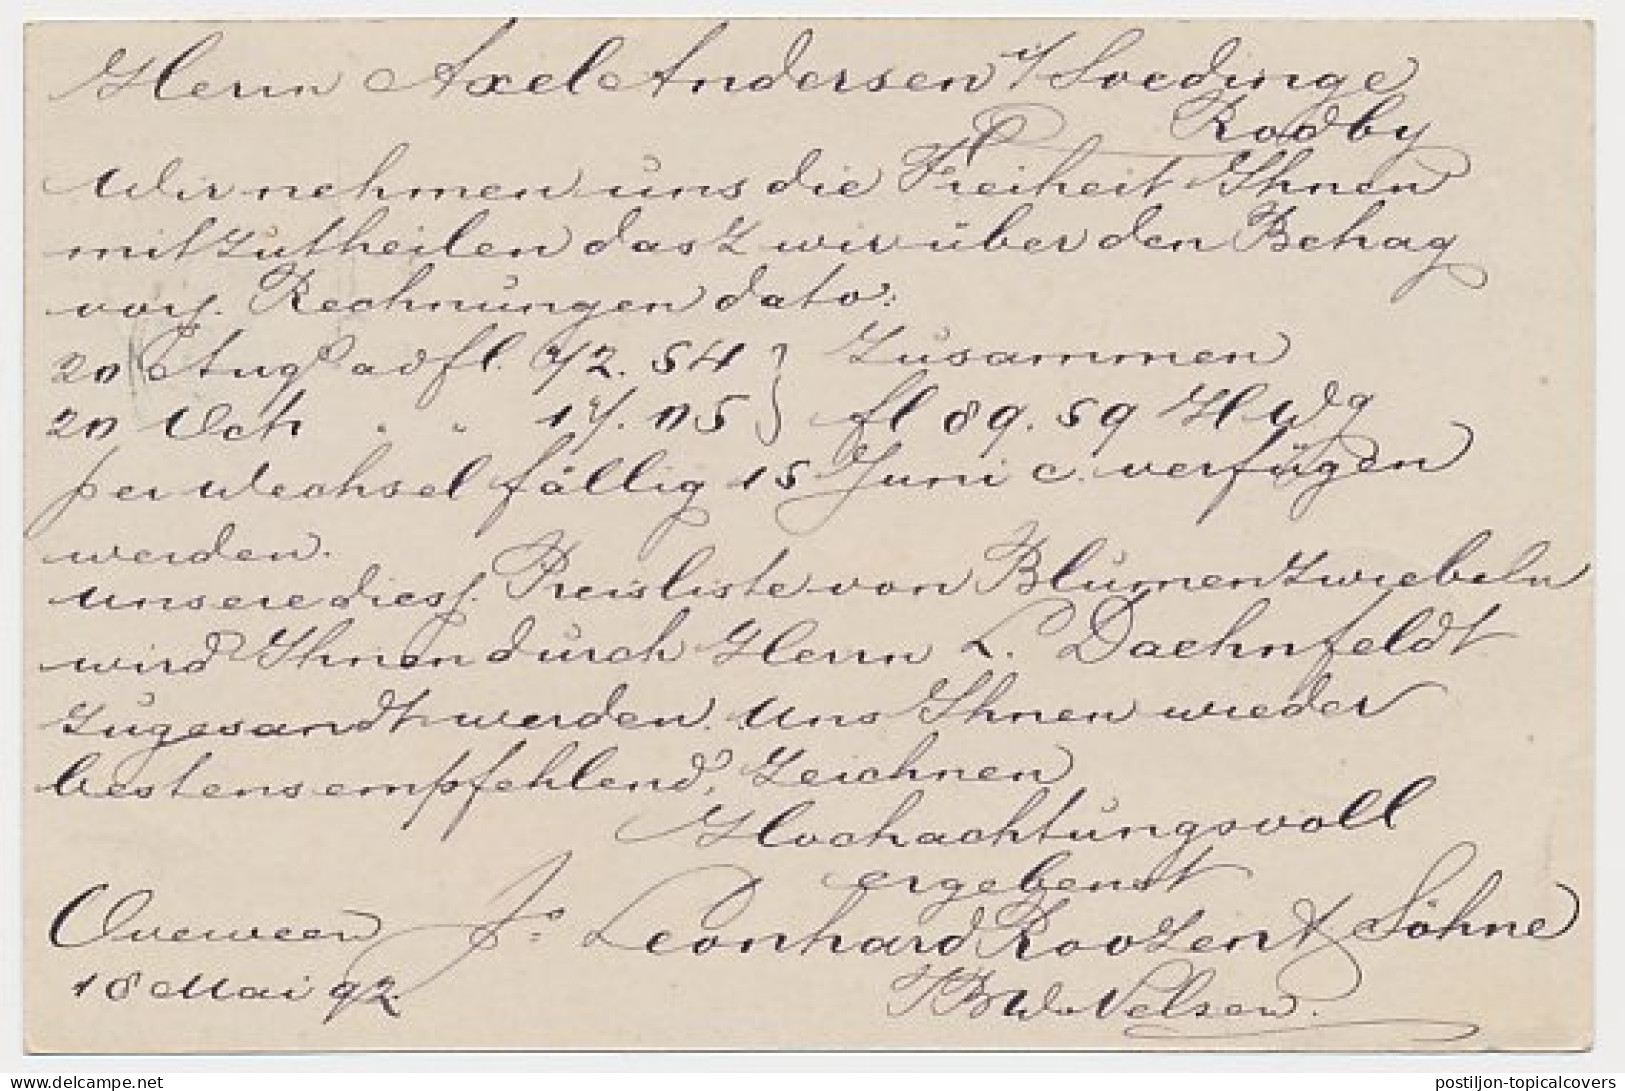 Herrn Axel Andersen i/ Soedinge
Rodby
Wir nehmen uns die Freiheit Ihnen
mitzutheilen dasz wir über den Betrag
vorj. Rechnungen dato:
20 Aug ad fl. 72.54 } Zusammen
20 Och " " 17.05 } fl 89.59 H Wg
per Wechsel fällig 15 Juni c. verfügen
werden.
Unsere diesj. Preisliste von Blumenzwiebeln
wird Ihnen durch Herrn L. Daehnfeldt
zugesandt werden. Uns Ihnen wieder
bestens empfehlend, Zeichnen
Hochachtungsvoll
ergebenst
Overveen Jo= Leonhard Roozen & Söhne
18 Mai 92.
Nelsen.
postiljon-topicalcovers
https://www.delcampe.net